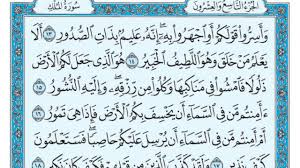 الجزء التاسع والعشرون
سورة الملك
وَأَسِرُّوا۟ قَوْلَكُمْ أَوِ ٱجْهَرُوا۟ بِهِۦٓ إِنَّهُۥ عَلِيمٌۢ بِذَاتِ ٱلصُّدُورِ ١٣ أَلَا
يَعْلَمُ مَنْ خَلَقَ وَهُوَ ٱللَّطِيفُ ٱلْخَبِيرُ ١٤ هُوَ ٱلَّذِى جَعَلَ لَكُمُ ٱلْأَرْضَ
ذَلُولًا فَٱمْشُوا۟ فِى مَنَاكِبِهَا وَكُلُوا۟ مِن رِّزْقِهِۦ وَإِلَيْهِ ٱلنُّشُورُ ١٥
ءَأَمِنتُم مَّن فِى ٱلسَّمَآءِ أَن يَخْسِفَ بِكُمُ ٱلْأَرْضَ فَإِذَا هِىَ تَمُورُ ١٦
أَمْ أَمِنتُم مَّن فِى ٱلسَّمَآءِ أَن يُرْسِلَ عَلَيْكُمْ حَاصِبًا فَسَتَعْلَمُونَ